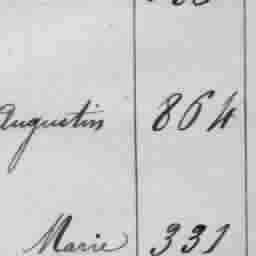 Augustin 864
Marie 331